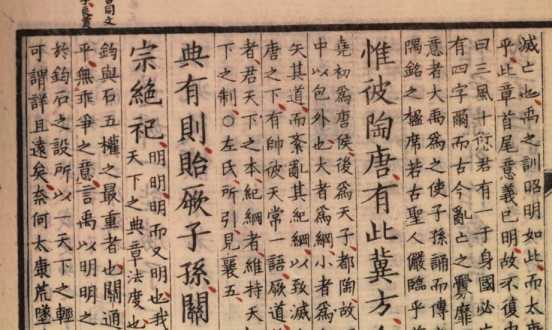 滅亡也禹之訓昭明如此而太康
乎此章首尾意義已明故不復
曰三風十愆君有一于身國必
有四字爾而古今亂亡之釁靡
意者大禹爲之使子孫誦而傳
隅銘之楹席若古聖人儼臨乎
惟彼陶唐有此冀方
堯初爲唐侯後爲天子都陶故
中以包外也大者爲綱小者爲
失其道而紊亂其紀綱以致滅
唐之下有帥彼天常一語厥道
者君天下之本紀綱者維持天
下之制○左氏所引見襄五
典有則貽厥子孫關
宗絕祀
明明明而又明也我
天下之典章法度也
鈞與石五權之最重者也關通
乎無乖爭之意言禹以明明之
於鈞石之設所以一天下之輕
可謂詳且遠矣奈何太康荒墜